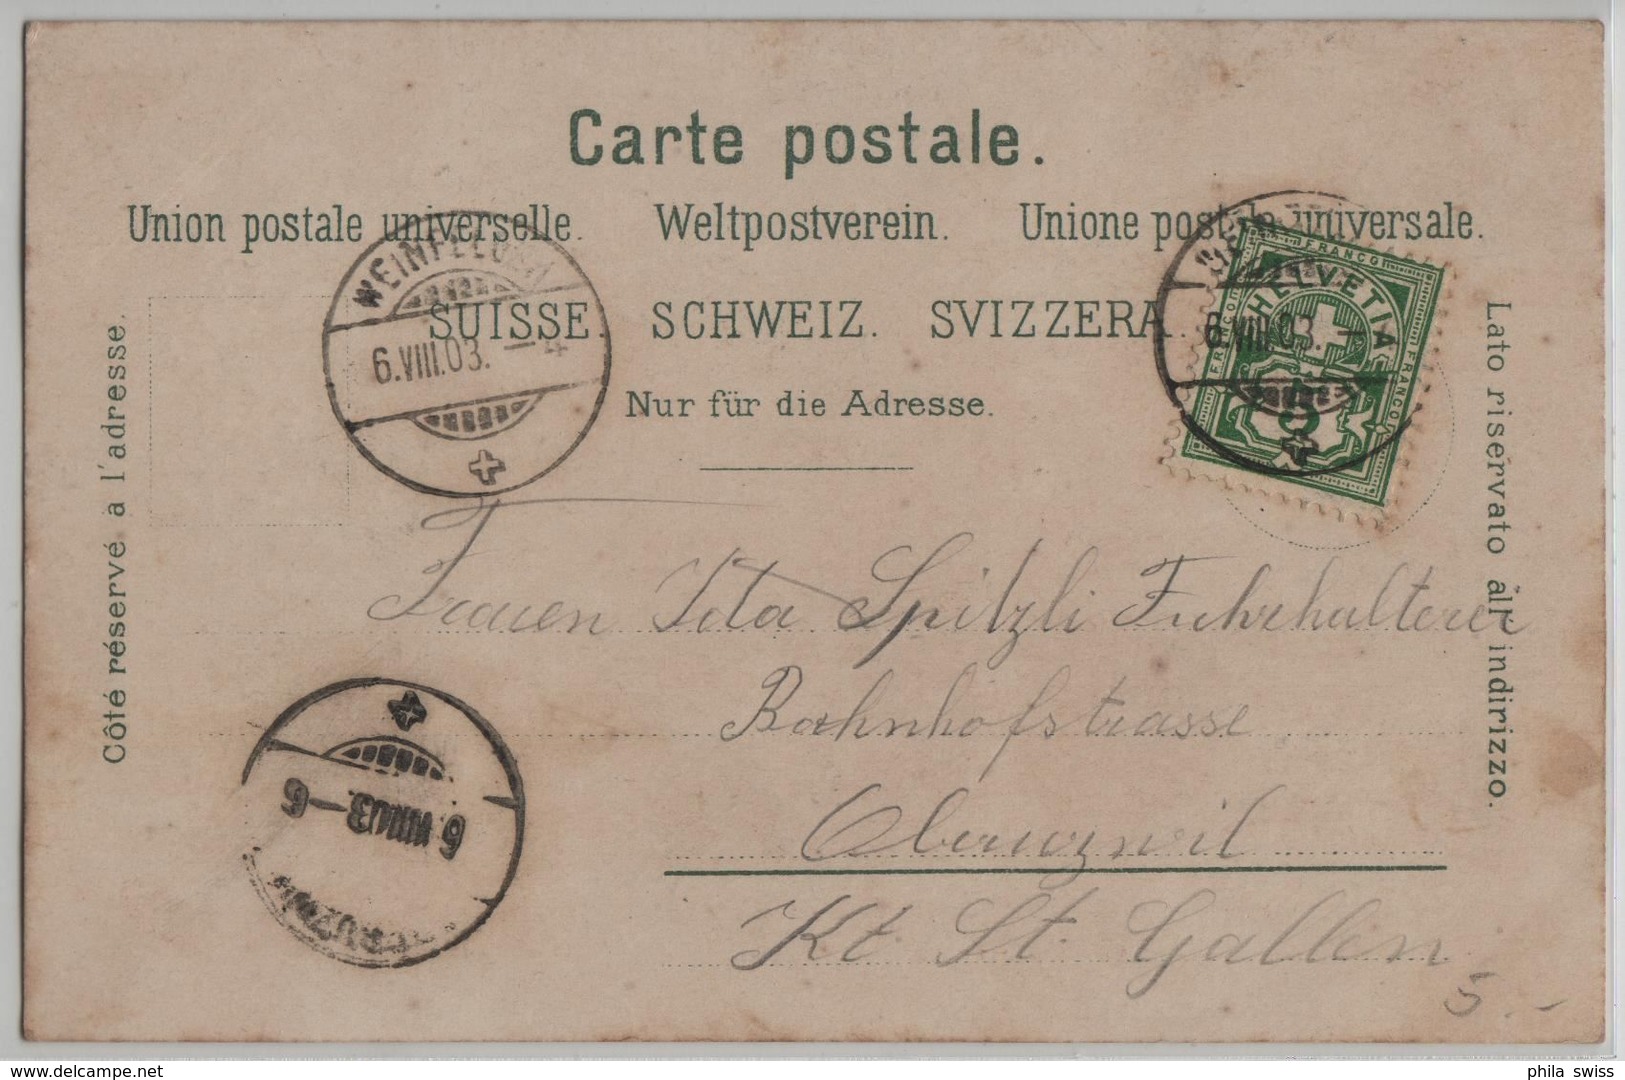 Carte postale.
Union postale universelle. Weltpostverein. Unione postale universale.
SUISSE. SCHWEIZ. SVIZZERA.
Nur für die Adresse.
Côté réservé à l'adresse.
Lato riservato all' indirizzo.
WEINFELDEN
6.VIII.03. – 4
6.VIII.03. –
FRANCO FRANCO FRANCO
HELVETIA
5
Frauen Ida Spitzli Fuhrhalterei
Bahnhofstrasse
Oberuzwil
Kt St. Gallen
6.VIII.03. – 6
OBERUZWIL
5.–
delcampe.net
phila swiss